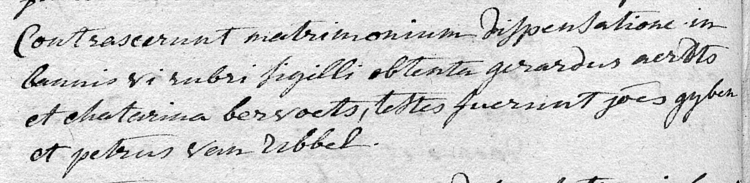 Contraxerunt matrimonium dispensatione in
bannis vi rubri sigilli obtenta gerardus aerdts
et chatarina bervoets, testes fuerunt joēs gyben
et petrus van Ubbel.